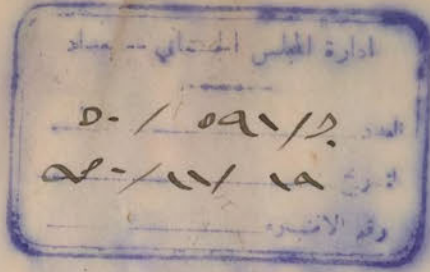 ادارة المجلس الجسماني – بغداد
العدد ج/٥٩١/٥٠
التاريخ ١٩/١١/٩٥٠
رقم الاضبارة